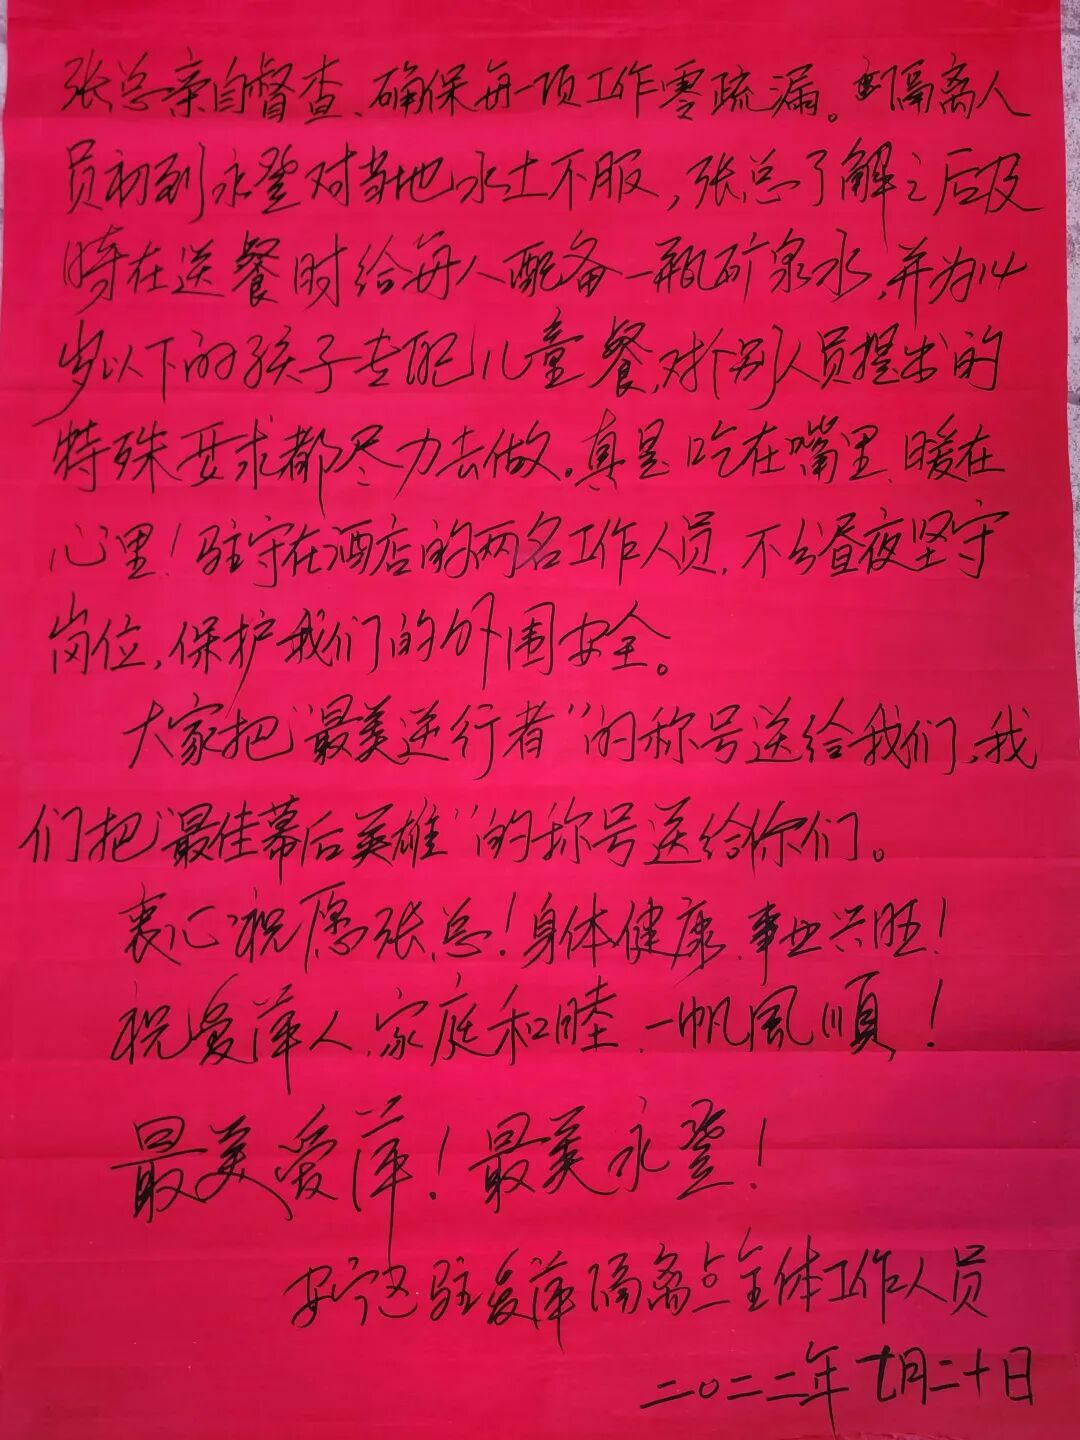 张总亲自督查、确保每一项工作零疏漏。隔离人
员初到永登对当地水土不服，张总了解之后及
時在送餐时给每人配备一瓶矿泉水，并为14
岁以下的孩子专配儿童餐，对个别人员提出的
特殊要求都尽力去做。真是吃在嘴里、暖在
心里！驻守在酒店的两名工作人员，不分昼夜坚守
岗位，保护我们的外围安全。
大家把“最美逆行者”的称号送给我们，我
们把“最佳幕后英雄”的称号送给你们。
衷心祝愿张总！身体健康、事业兴旺！
祝爱萍人、家庭和睦、一帆風順！
最美爱萍！最美永登！
安宁区驻爱萍隔离点全体工作人员
二〇二二年七月二十日